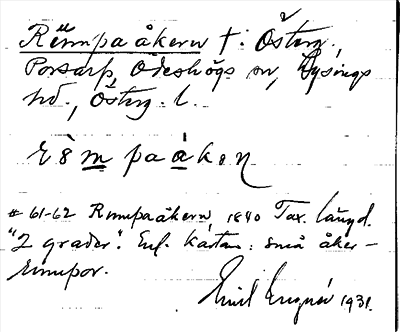 Rämpaåkern t: Österg.
Porsarp, Ödeshögs sn, Lysings
hd., Österg. l.
r8mpaåkon
# 61-62 Rempaåkern, 1880 Tax. längd.
"2 grader". Enl. kartan: små åker-
Emil 1931.